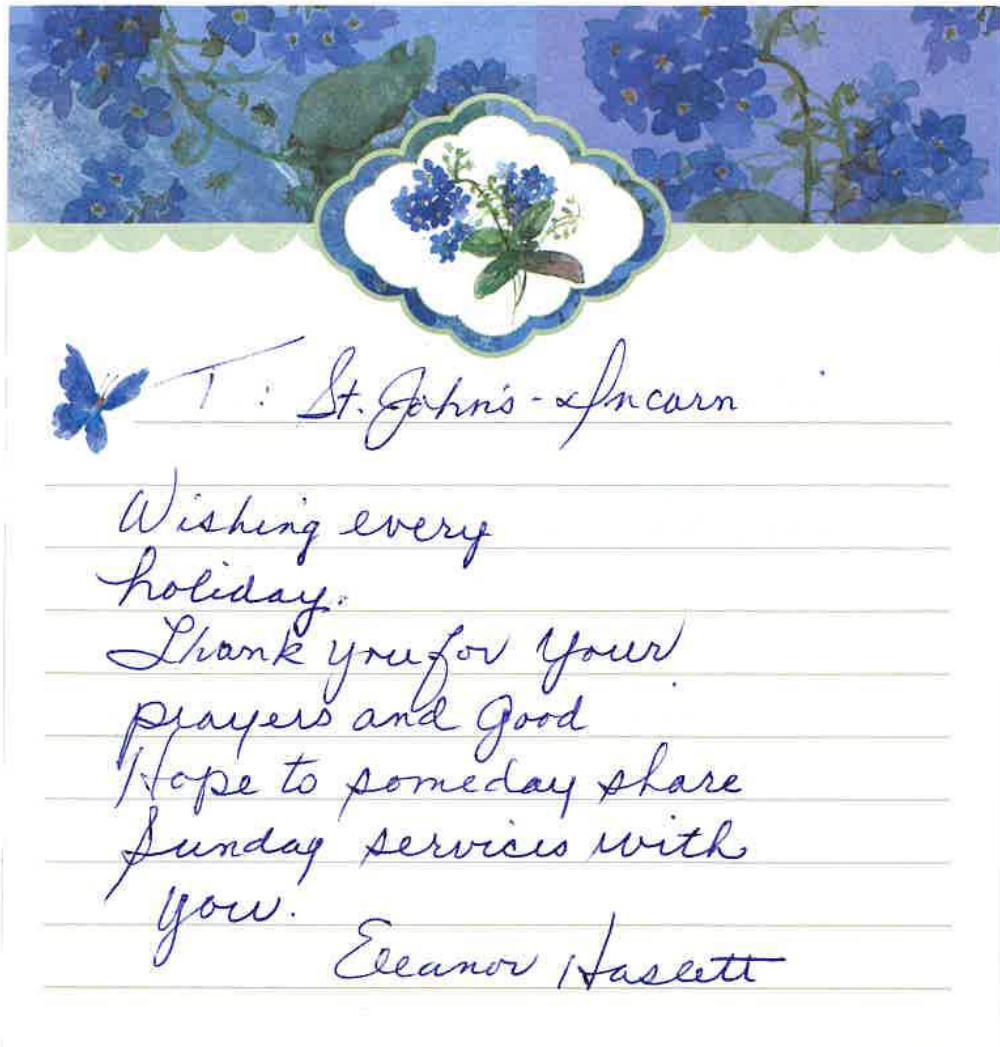 T: St. John's - Incarn
Wishing every
holiday.
Thank you for your
prayers and Good
Hope to someday share
Sunday services with
you.
Eleanor Haslett